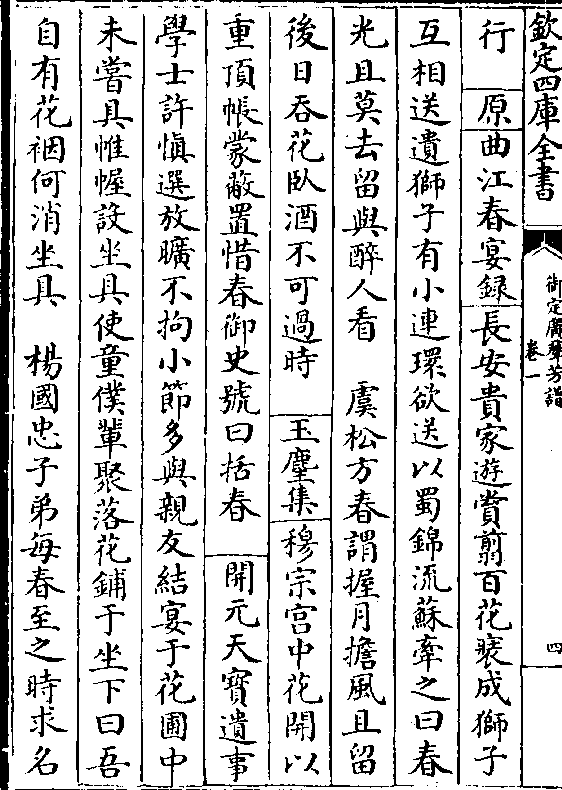 欽定四庫全書
御定廣群芳譜
卷一
四
行 原 曲江春宴録 長安貴家遊賞翦百花裹成獅子
互相送遺獅子有小連環欲送以蜀錦流蘇牽之曰春
光且莫去留與醉人看 虞松方春謂握月擔風且留
後日吞花臥酒不可過時 玉塵集 穆宗宫中花開以
重頂帳蒙蔽置惜春御史號曰括春 開元天寶遺事
學士許愼選放曠不拘小節多與親友結宴于花圃中
未嘗具帷幄設坐具使童僕輩聚落花鋪于坐下曰吾
自有花裀何消坐具 楊國忠子弟每春至之時求名